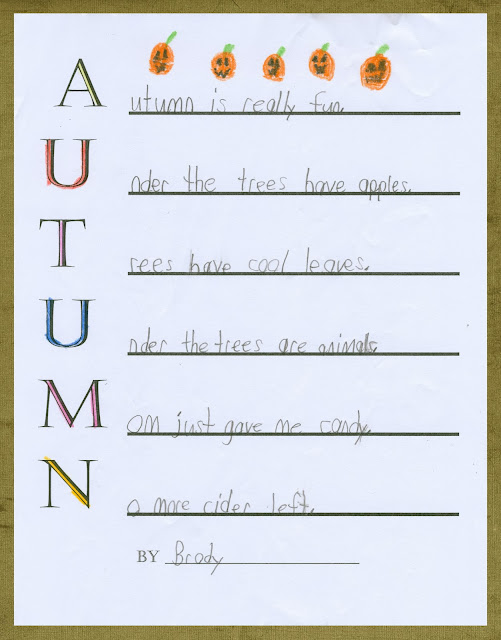 Autumn is really fun.
Under the trees have apples.
Trees have cool leaves.
Under the trees are animals
Mom just gave me candy.
No more cider left.
BY Brody